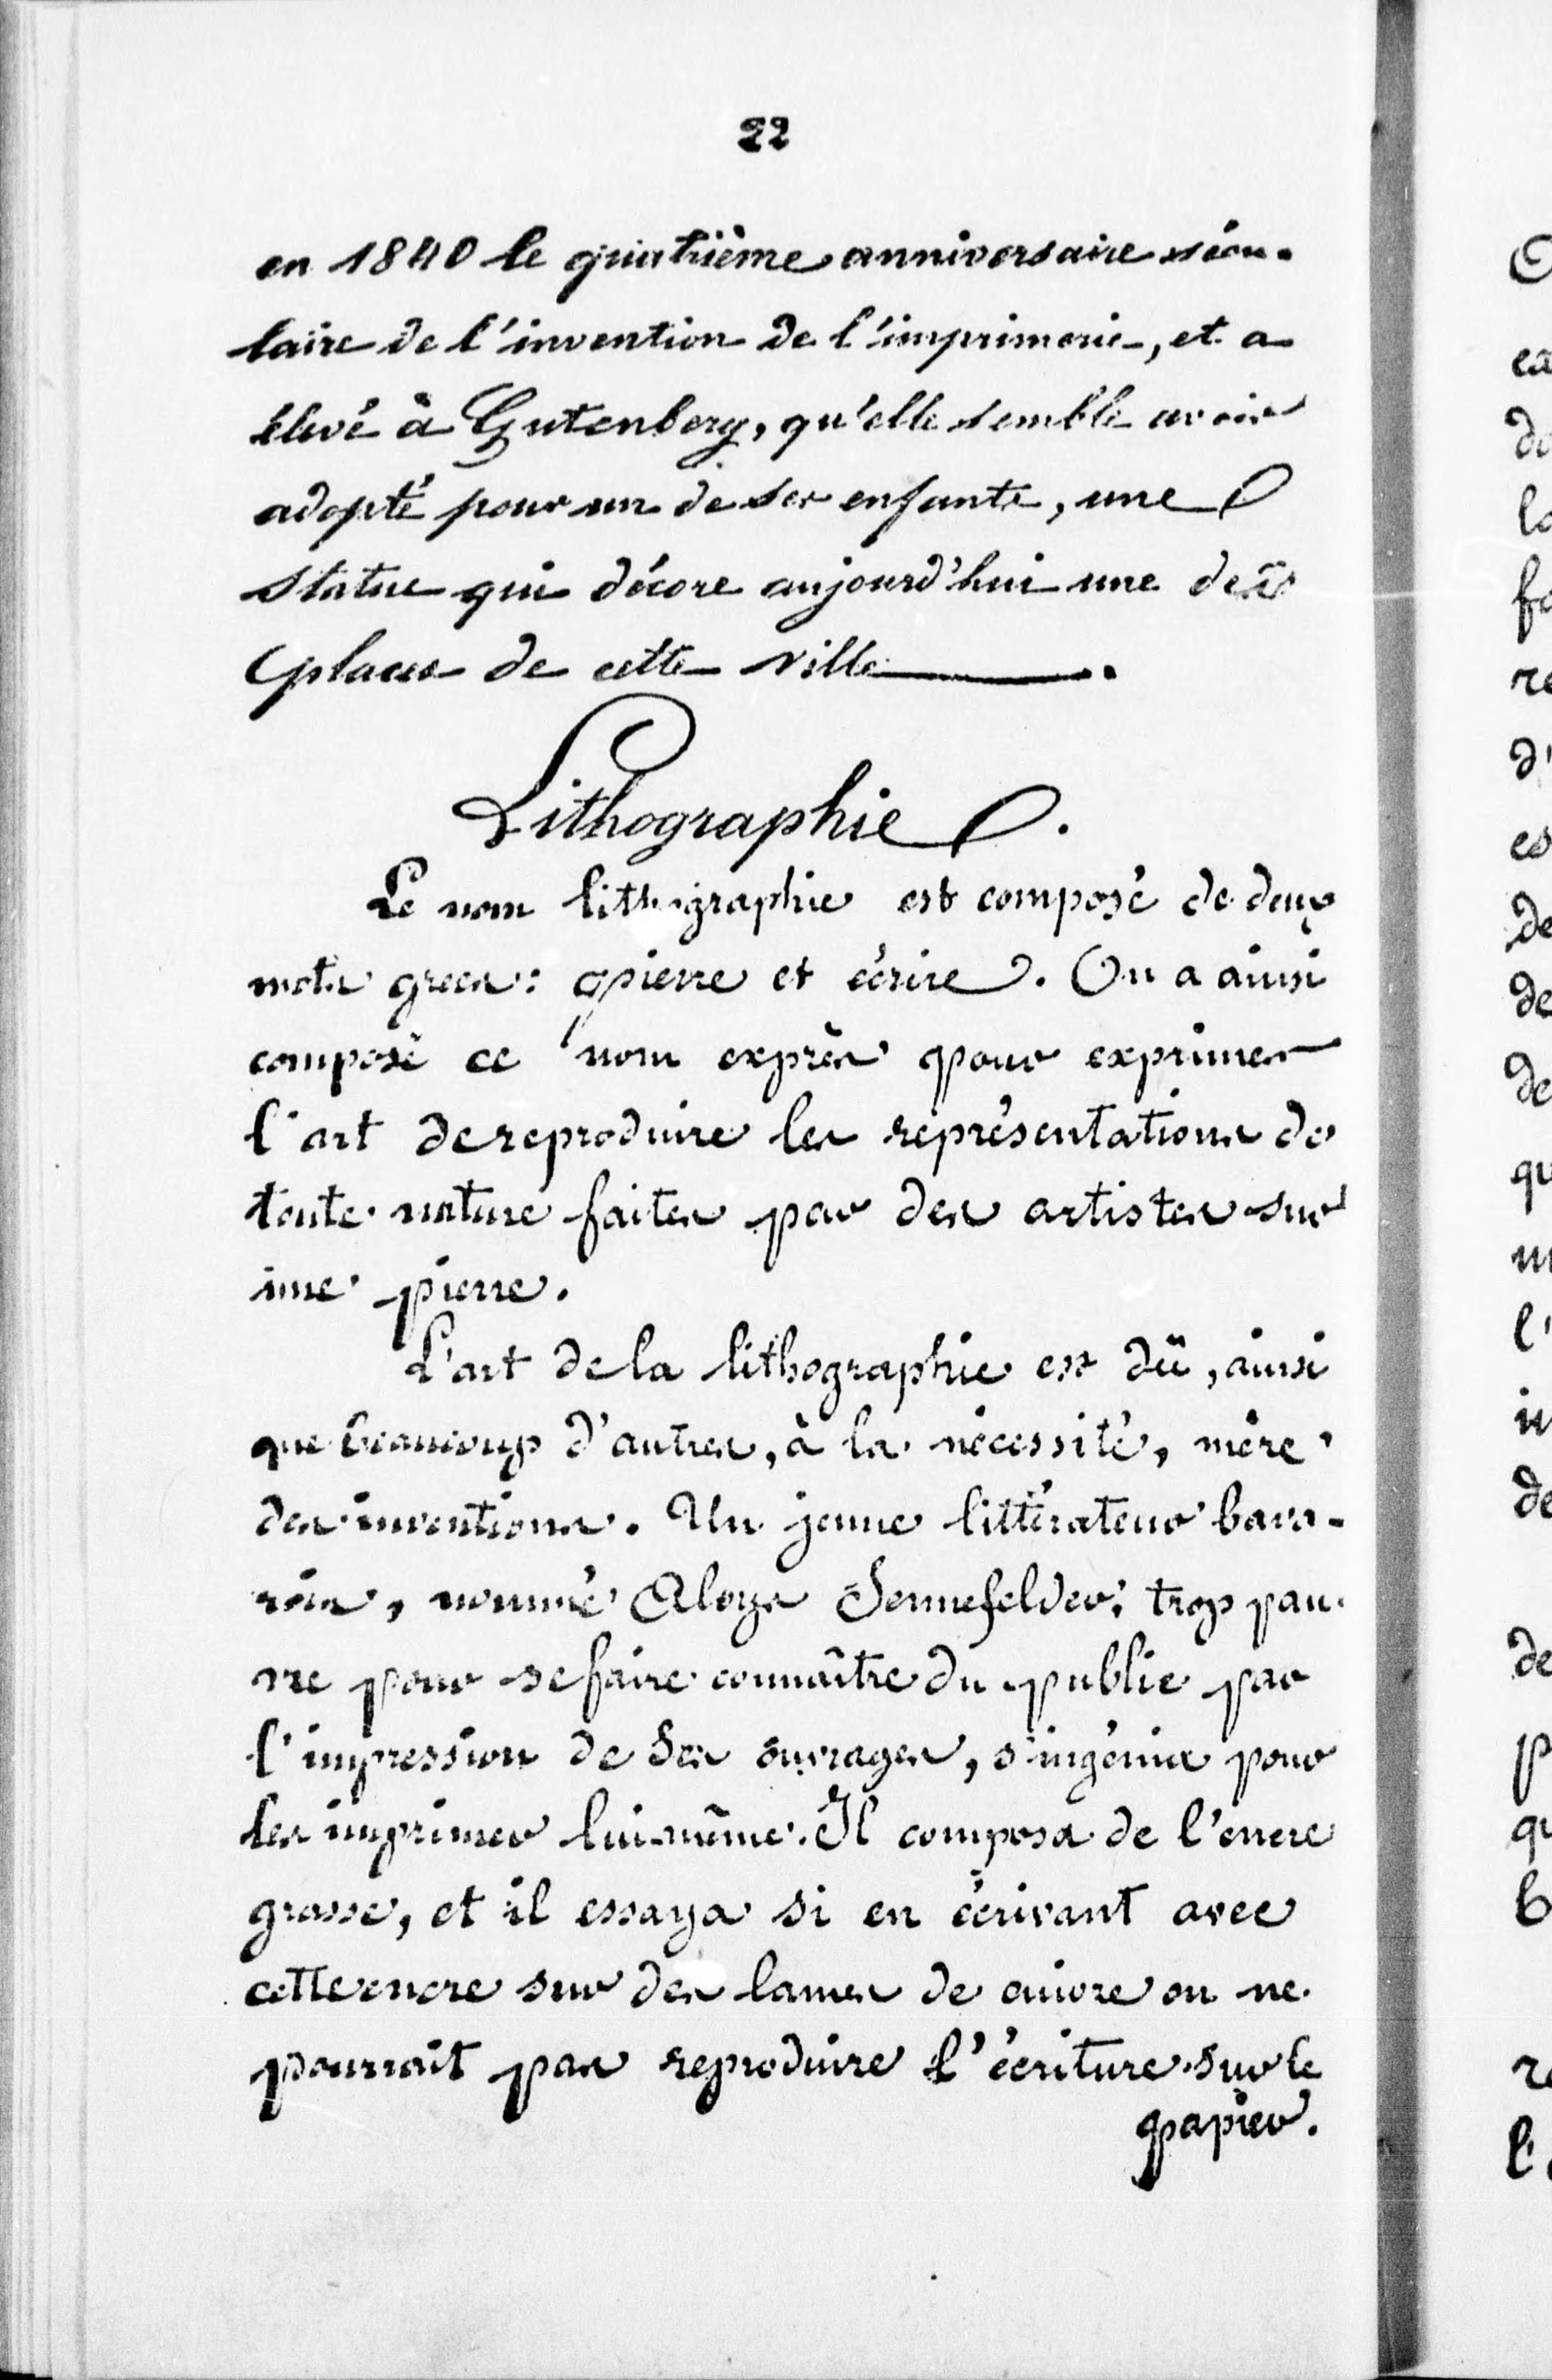 22
en 1840 le quatrième anniversaire sécu-
laire de l'invention de l'imprimerie, et a
élevé à Gutenberg, qu'elle semble avoir
adopté pour un de ses enfants, une
statue qui décore aujourd'hui une des
places de cette ville.
Lithographie.
Le nom lithographie est composé de deux
mots grecs: pierre et écrire. On a ainsi
composé ce nom exprès pour exprimer
l'art de reproduire les représentations de
toute nature faites par des artistes sur
une pierre.
L'art de la lithographie est dû, ainsi
que beaucoup d'autres, à la nécessité, mère
des inventions. Un jeune littérateur bava-
rois, nommé Aloys Sennefelder, trop pau-
vre pour se faire connaître du public par
l'impression de ses ouvrages, s'ingénia pour
les imprimer lui-même. Il composa de l'encre
grasse, et il essaya si en écrivant avec
cette encre sur des lames de cuivre on ne
pourrait pas reproduire l'écriture sur le
papier.